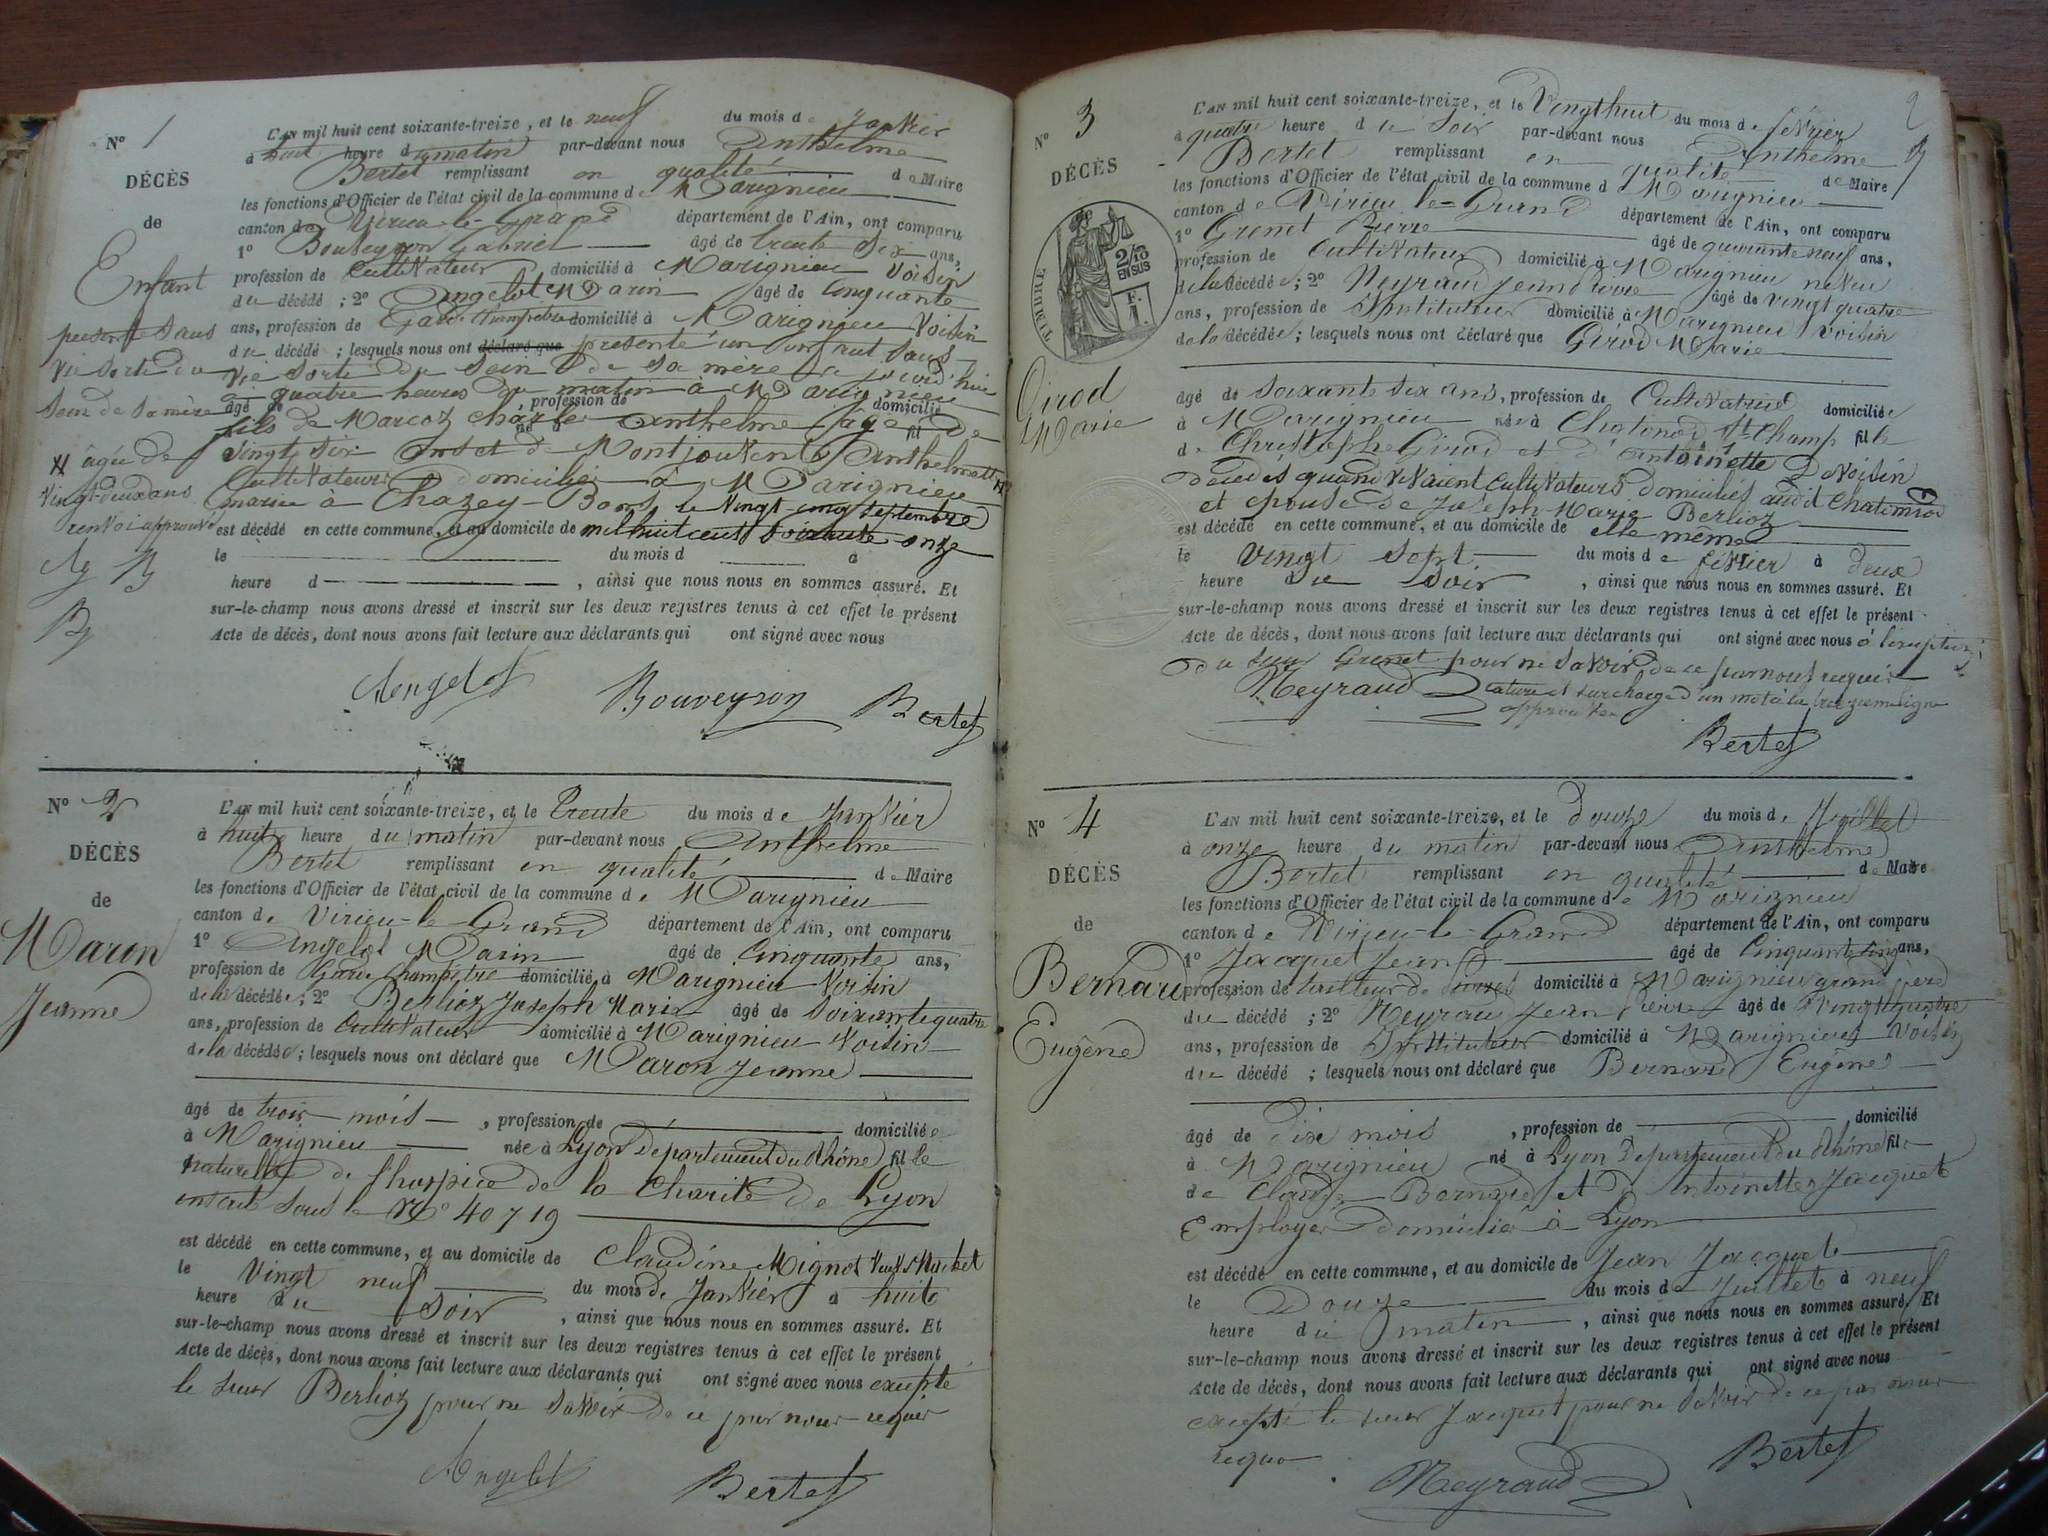 N° 1
DÉCÈS
de
Enfant
présenté sans
vie sorti du
sein de sa mère
âgée de
vingt-deux ans
renvoi approuvé
L'AN mil huit cent soixante-treize, et le neuf du mois de Janvier
à huit heure du matin par-devant nous Anthelme
Bertet remplissant en qualité de Maire
les fonctions d'Officier de l'état civil de la commune de Marignieu
canton de Virieu-le-Grand département de l'Ain, ont comparu
1° Bouveyron Gabriel âgé de trente six ans,
profession de Cultivateur domicilié à Marignieu voisin
du décédé ; 2° Angelot Marin âgé de Cinquante
ans, profession de Garde champêtre domicilié à Marignieu voisin
du décédé ; lesquels nous ont déclaré que présenté un enfant sans
vie sorti du sein de sa mère aujourd'hui
à quatre heures du matin à Marignieu
âgé de , profession de domicilié
fils de Marcoz Charles Anthelme âgé de
né fil
vingt six ans et de Montjouvent Anthelmette
Cultivateurs domiciliés à Marignieu
mariés à Chazey-Bons le vingt-cinq septembre
est décédé en cette commune, et au domicile de mil huit cent soixante onze
le du mois d à
heure d , ainsi que nous nous en sommes assuré. Et
sur-le-champ nous avons dressé et inscrit sur les deux registres tenus à cet effet le présent
Acte de décès, dont nous avons fait lecture aux déclarants qui ont signé avec nous
Angelot Bouveyron Bertet
N° 2
DÉCÈS
de
Maron
Jeanne
L'AN mil huit cent soixante-treize, et le trente du mois de Janvier
à huit heure du matin par-devant nous Anthelme
Bertet remplissant en qualité de Maire
les fonctions d'Officier de l'état civil de la commune de Marignieu
canton de Virieu-le-Grand département de l'Ain, ont comparu
1° Angelot Marin âgé de Cinquante ans,
profession de Garde Champêtre domicilié à Marignieu voisin
de la décédée ; 2° Berlioz Joseph Marie âgé de soixante quatre
ans, profession de Cultivateur domicilié à Marignieu voisin
de la décédée ; lesquels nous ont déclaré que Maron Jeanne
âgé de trois mois , profession de domiciliée
à Marignieu née à Lyon Département du Rhône fille
naturelle de l'hospice de la Charité de Lyon
inscrite sous le N° 40719
est décédé en cette commune, et au domicile de Claudine Mignot veuve
le vingt neuf du mois de Janvier à huit
heure du soir , ainsi que nous nous en sommes assuré. Et
sur-le-champ nous avons dressé et inscrit sur les deux registres tenus à cet effet le présent
Acte de décès, dont nous avons fait lecture aux déclarants qui ont signé avec nous excepté
le sieur Berlioz pour ne savoir de ce par nous requer
Angelot Bertet
2
N° 3
DÉCÈS
TIMBRE
2/10
EN SUS
F.
1
Girod
Marie
L'AN mil huit cent soixante-treize, et le Vingt huit du mois de février
à quatre heure du soir par-devant nous Anthelme
Bertet remplissant en qualité de Maire
les fonctions d'Officier de l'état civil de la commune d Marignieu
canton de Virieu-le-Grand département de l'Ain, ont comparu
1° Grenet Pierre âgé de quarante neuf ans,
profession de Cultivateur domicilié à Marignieu neveu
de la décédée ; 2° Meyraud Jean Pierre âgé de vingt quatre
ans, profession de Instituteur domicilié à Marignieu voisin
de la décédée ; lesquels nous ont déclaré que Girod Marie
âgé de soixante six ans, profession de Cultivatrice domiciliée
à Marignieu née à Chatonod St Champ fille
de Christophe Girod et d'Antoinette Devoisin
décédés quand vivaient Cultivateurs domiciliés audit Chatonod
et épouse de Joseph Marie Berlioz
est décédé en cette commune, et au domicile de elle même
le vingt sept du mois de février à deux
heure du soir , ainsi que nous nous en sommes assuré. Et
sur-le-champ nous avons dressé et inscrit sur les deux registres tenus à cet effet le présent
Acte de décès, dont nous avons fait lecture aux déclarants qui ont signé avec nous à l'exception
du sieur Grenet pour ne savoir de ce par nous requis
Meyraud rature et surcharge d'un mot à la treizieme ligne
approuvée
Bertet
N° 4
DÉCÈS
de
Bernard
Eugène
L'AN mil huit cent soixante-treize, et le douze du mois de Juillet
à onze heure du matin par-devant nous Anthelme
Bertet remplissant en qualité de Maire
les fonctions d'Officier de l'état civil de la commune de Marignieu
canton de Virieu-le-Grand département de l'Ain, ont comparu
1° Jacquet Jean âgé de Cinquante cinq ans,
profession de tailleur de domicilié à Marignieu grand père
du décédé ; 2° Meyraud Jean Pierre âgé de Vingt quatre
ans, profession de Instituteur domicilié à Marignieu voisin
du décédé ; lesquels nous ont déclaré que Bernard Eugène
âgé de dix mois , profession de domicilié
à Marignieu né à Lyon Département du Rhône fils
de Claude Bernard et d'Antoinette Jacquet
Employés domicilié à Lyon
est décédé en cette commune, et au domicile de Jean Jacquet
le Douze du mois de Juillet à neuf
heure du matin , ainsi que nous nous en sommes assuré. Et
sur-le-champ nous avons dressé et inscrit sur les deux registres tenus à cet effet le présent
Acte de décès, dont nous avons fait lecture aux déclarants qui ont signé avec nous
excepté le sieur Jacquet pour ne savoir de ce par nous
requis
Meyraud Bertet